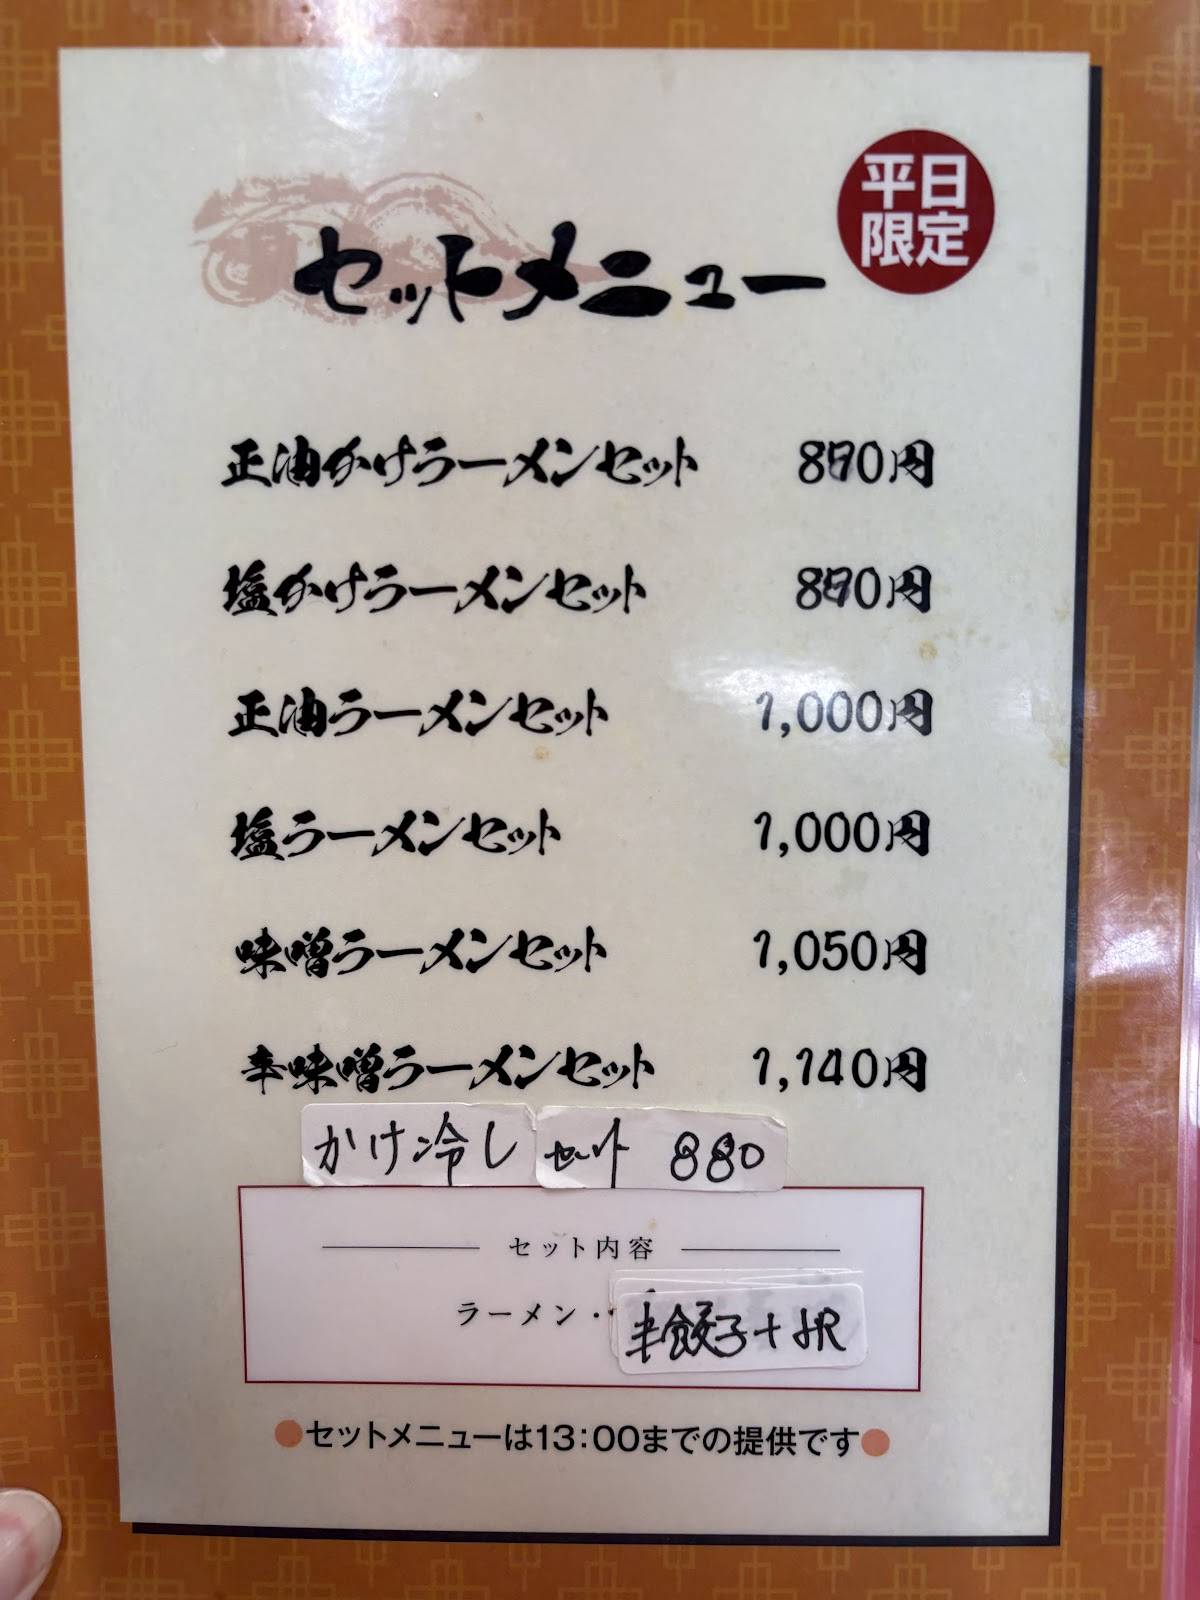 平日
限定
セットメニュー
正油かけラーメンセット 890円
塩かけラーメンセット 890円
正油ラーメンセット 1,000円
塩ラーメンセット 1,000円
味噌ラーメンセット 1,050円
辛味噌ラーメンセット 1,140円
かけ冷し セット 880
セット内容
ラーメン・半餃子+小R
●セットメニューは13:00までの提供です●